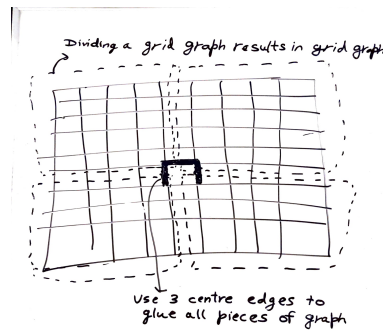 Dividing a grid graph results in grid graph
use 3 centre edges to
glue all pieces of graph